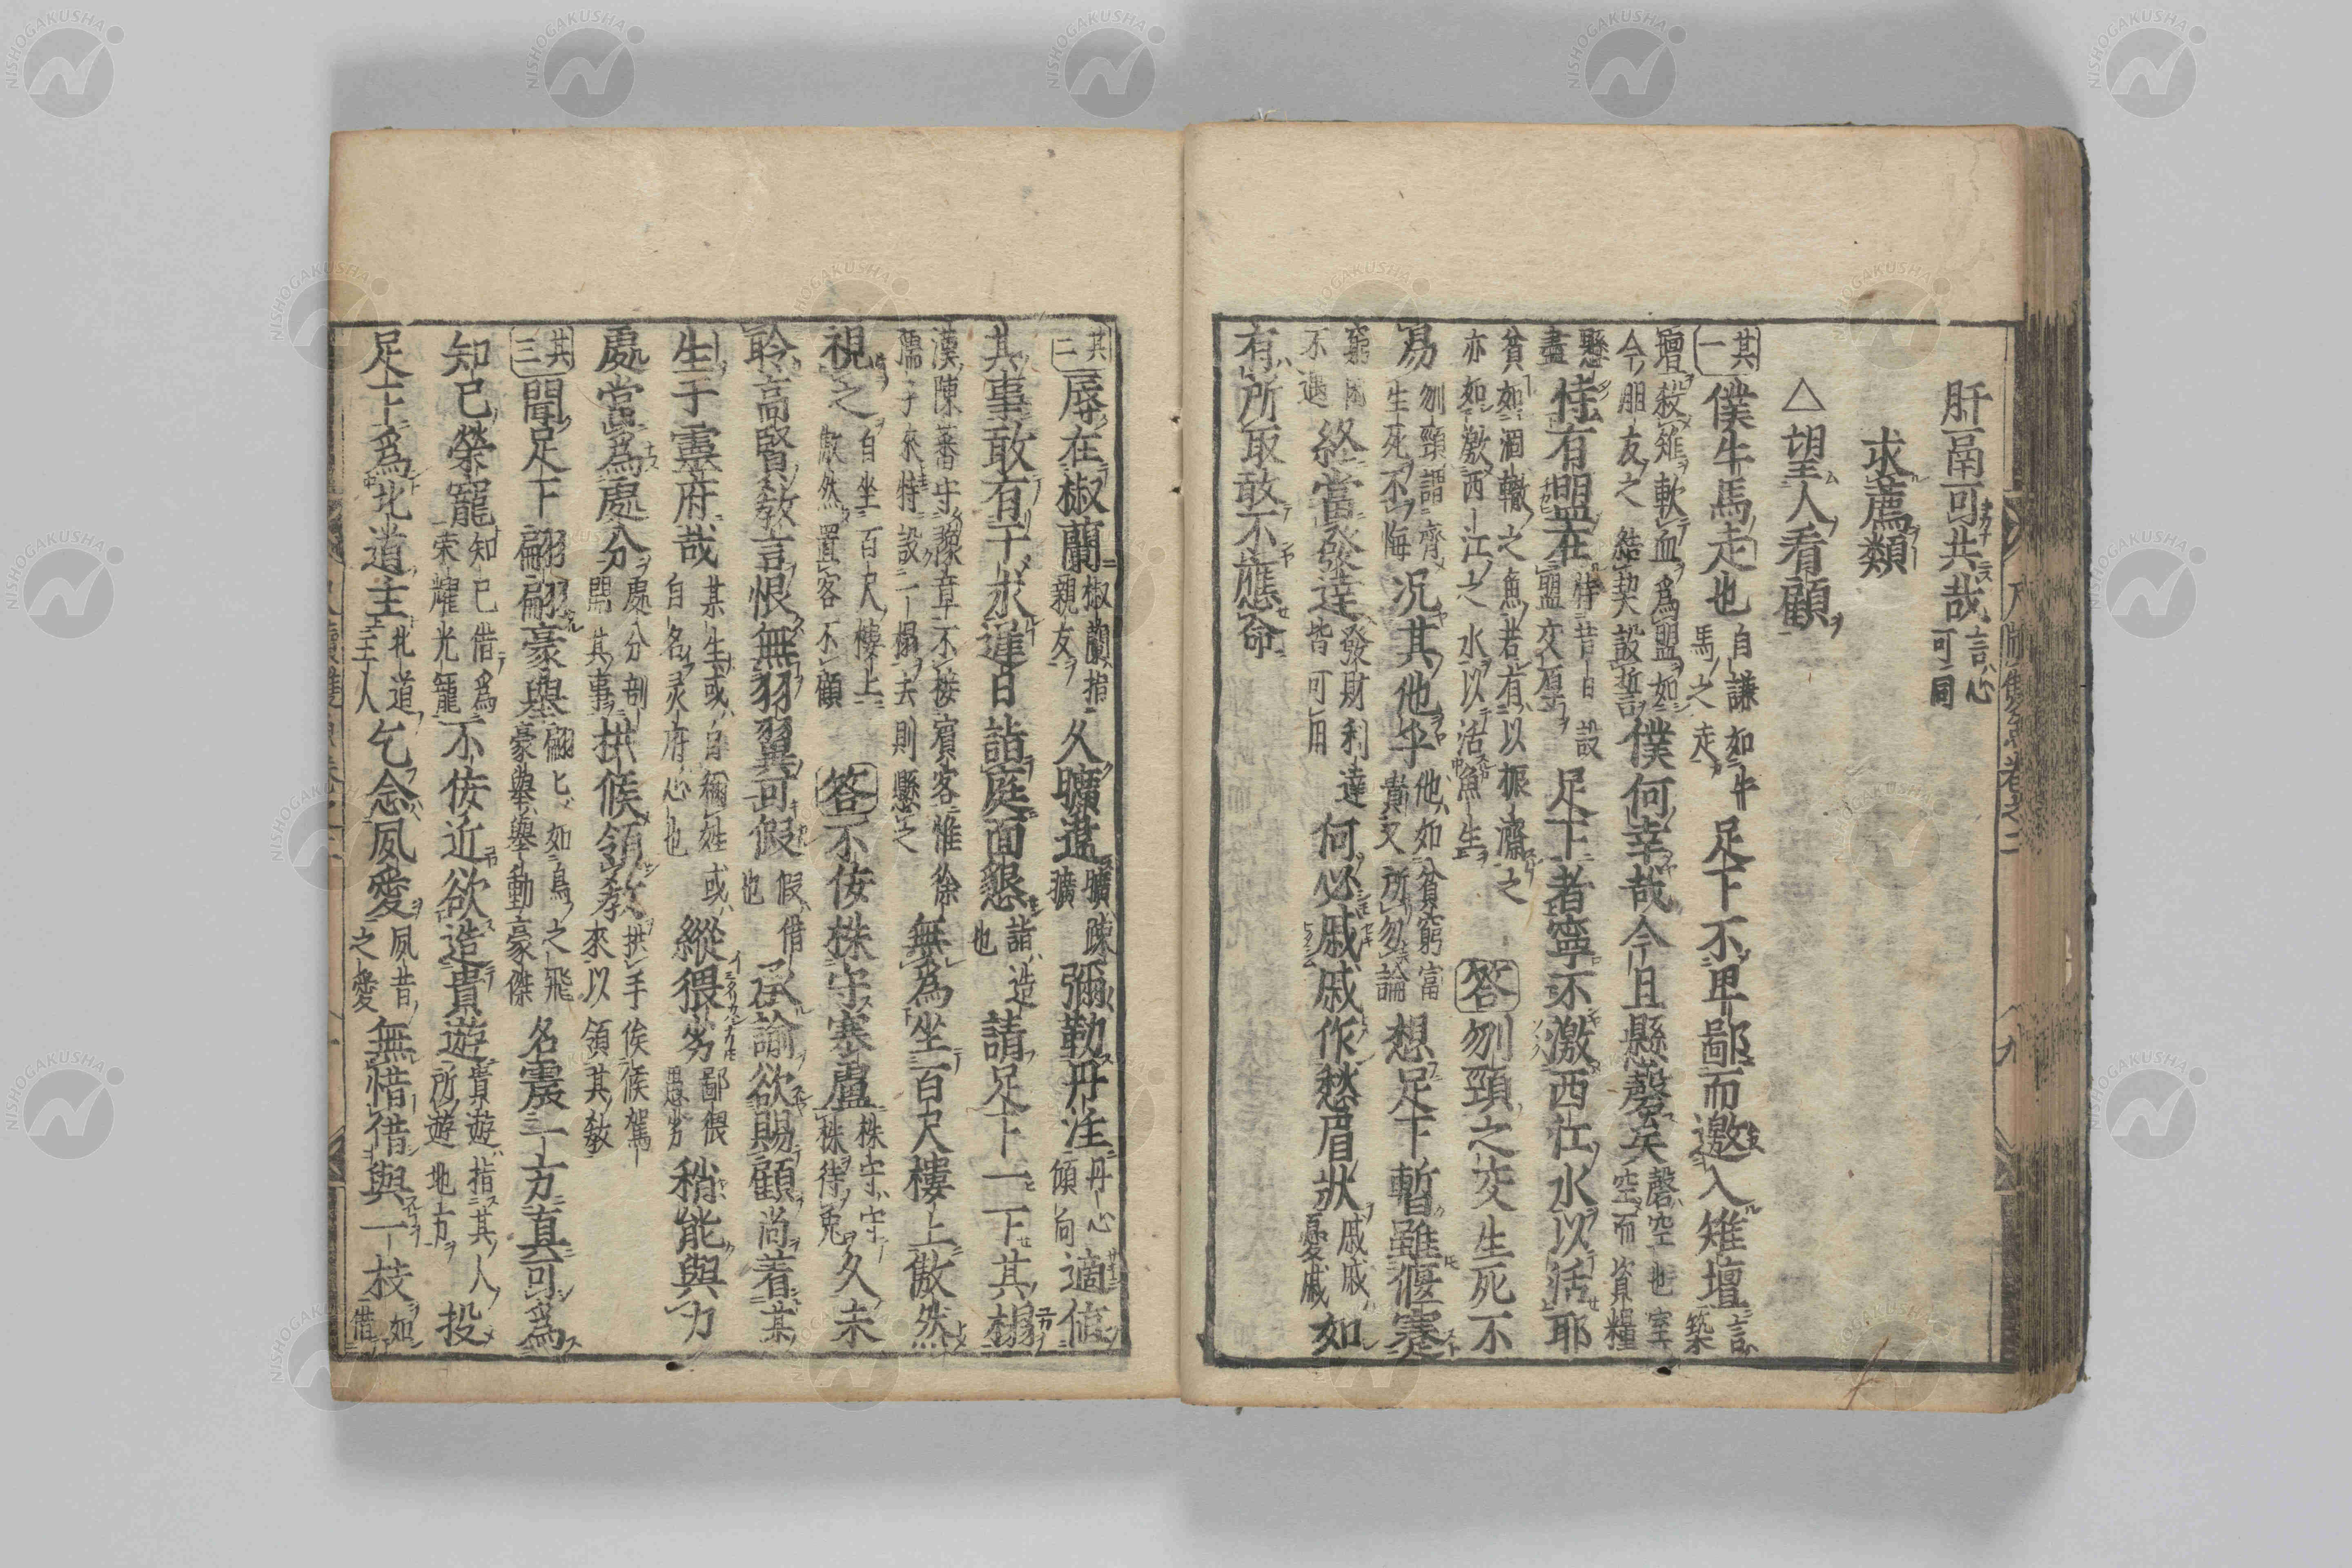 肝鬲可共哉言心可同
求薦類
△望人看顧
其一僕牛馬走也自謙如牛馬之走足下不卑鄙而邀入雉壇言築
壇殺雉軟血爲盟如今朋友之結契設誓僕何幸哉今且懸磬矣磬空也室空而資糧
懸盡恃有盟在恃昔日設盟交厚足下者寧不激西江水以活耶
貧如涸轍之魚若有以振濟之亦如激西江之水以活魚生答刎頸之交生死不
易刎頸謂齊生死不悔況其他乎他如貧窮富貴又所勿論想足下暫雖偃蹇
窮困不遇終當發達發財利達皆可用何必戚戚作愁眉狀戚戚憂戚如
有所取敢不應命
其二辱在椒蘭椒蘭指親友久曠進曠踈彌勒丹注丹心傾向適値
其事敢有干求進日詣庭面懇詣造也請足下一下其榻
漢陳蕃守豫章不接賓客惟徐孺子來特設一榻去則懸之無爲坐百尺樓上傲然
視之自坐百尺樓上傲然置客不顧答不侫株守寒廬株守守株待兎久未
聆高賢教言恨無羽翼可假假借也承諭欲賜顧尚着某
生于靈府哉某生或自稱姓或自名灵府心也縱猥劣鄙猥愚劣稍能與力
處當爲處分處分剖開其事拱候領教拱手俟候駕來以領其敎
其三聞足下翩翩豪舉翩匕如鳥之飛豪舉舉動豪傑名震一方真可爲
知已榮寵知已借爲荣耀光寵不侫近欲造貴遊貴遊指其人所遊地方投
足下爲北道主北道主人乞念夙愛夙昔之愛無惜借與一枝如借